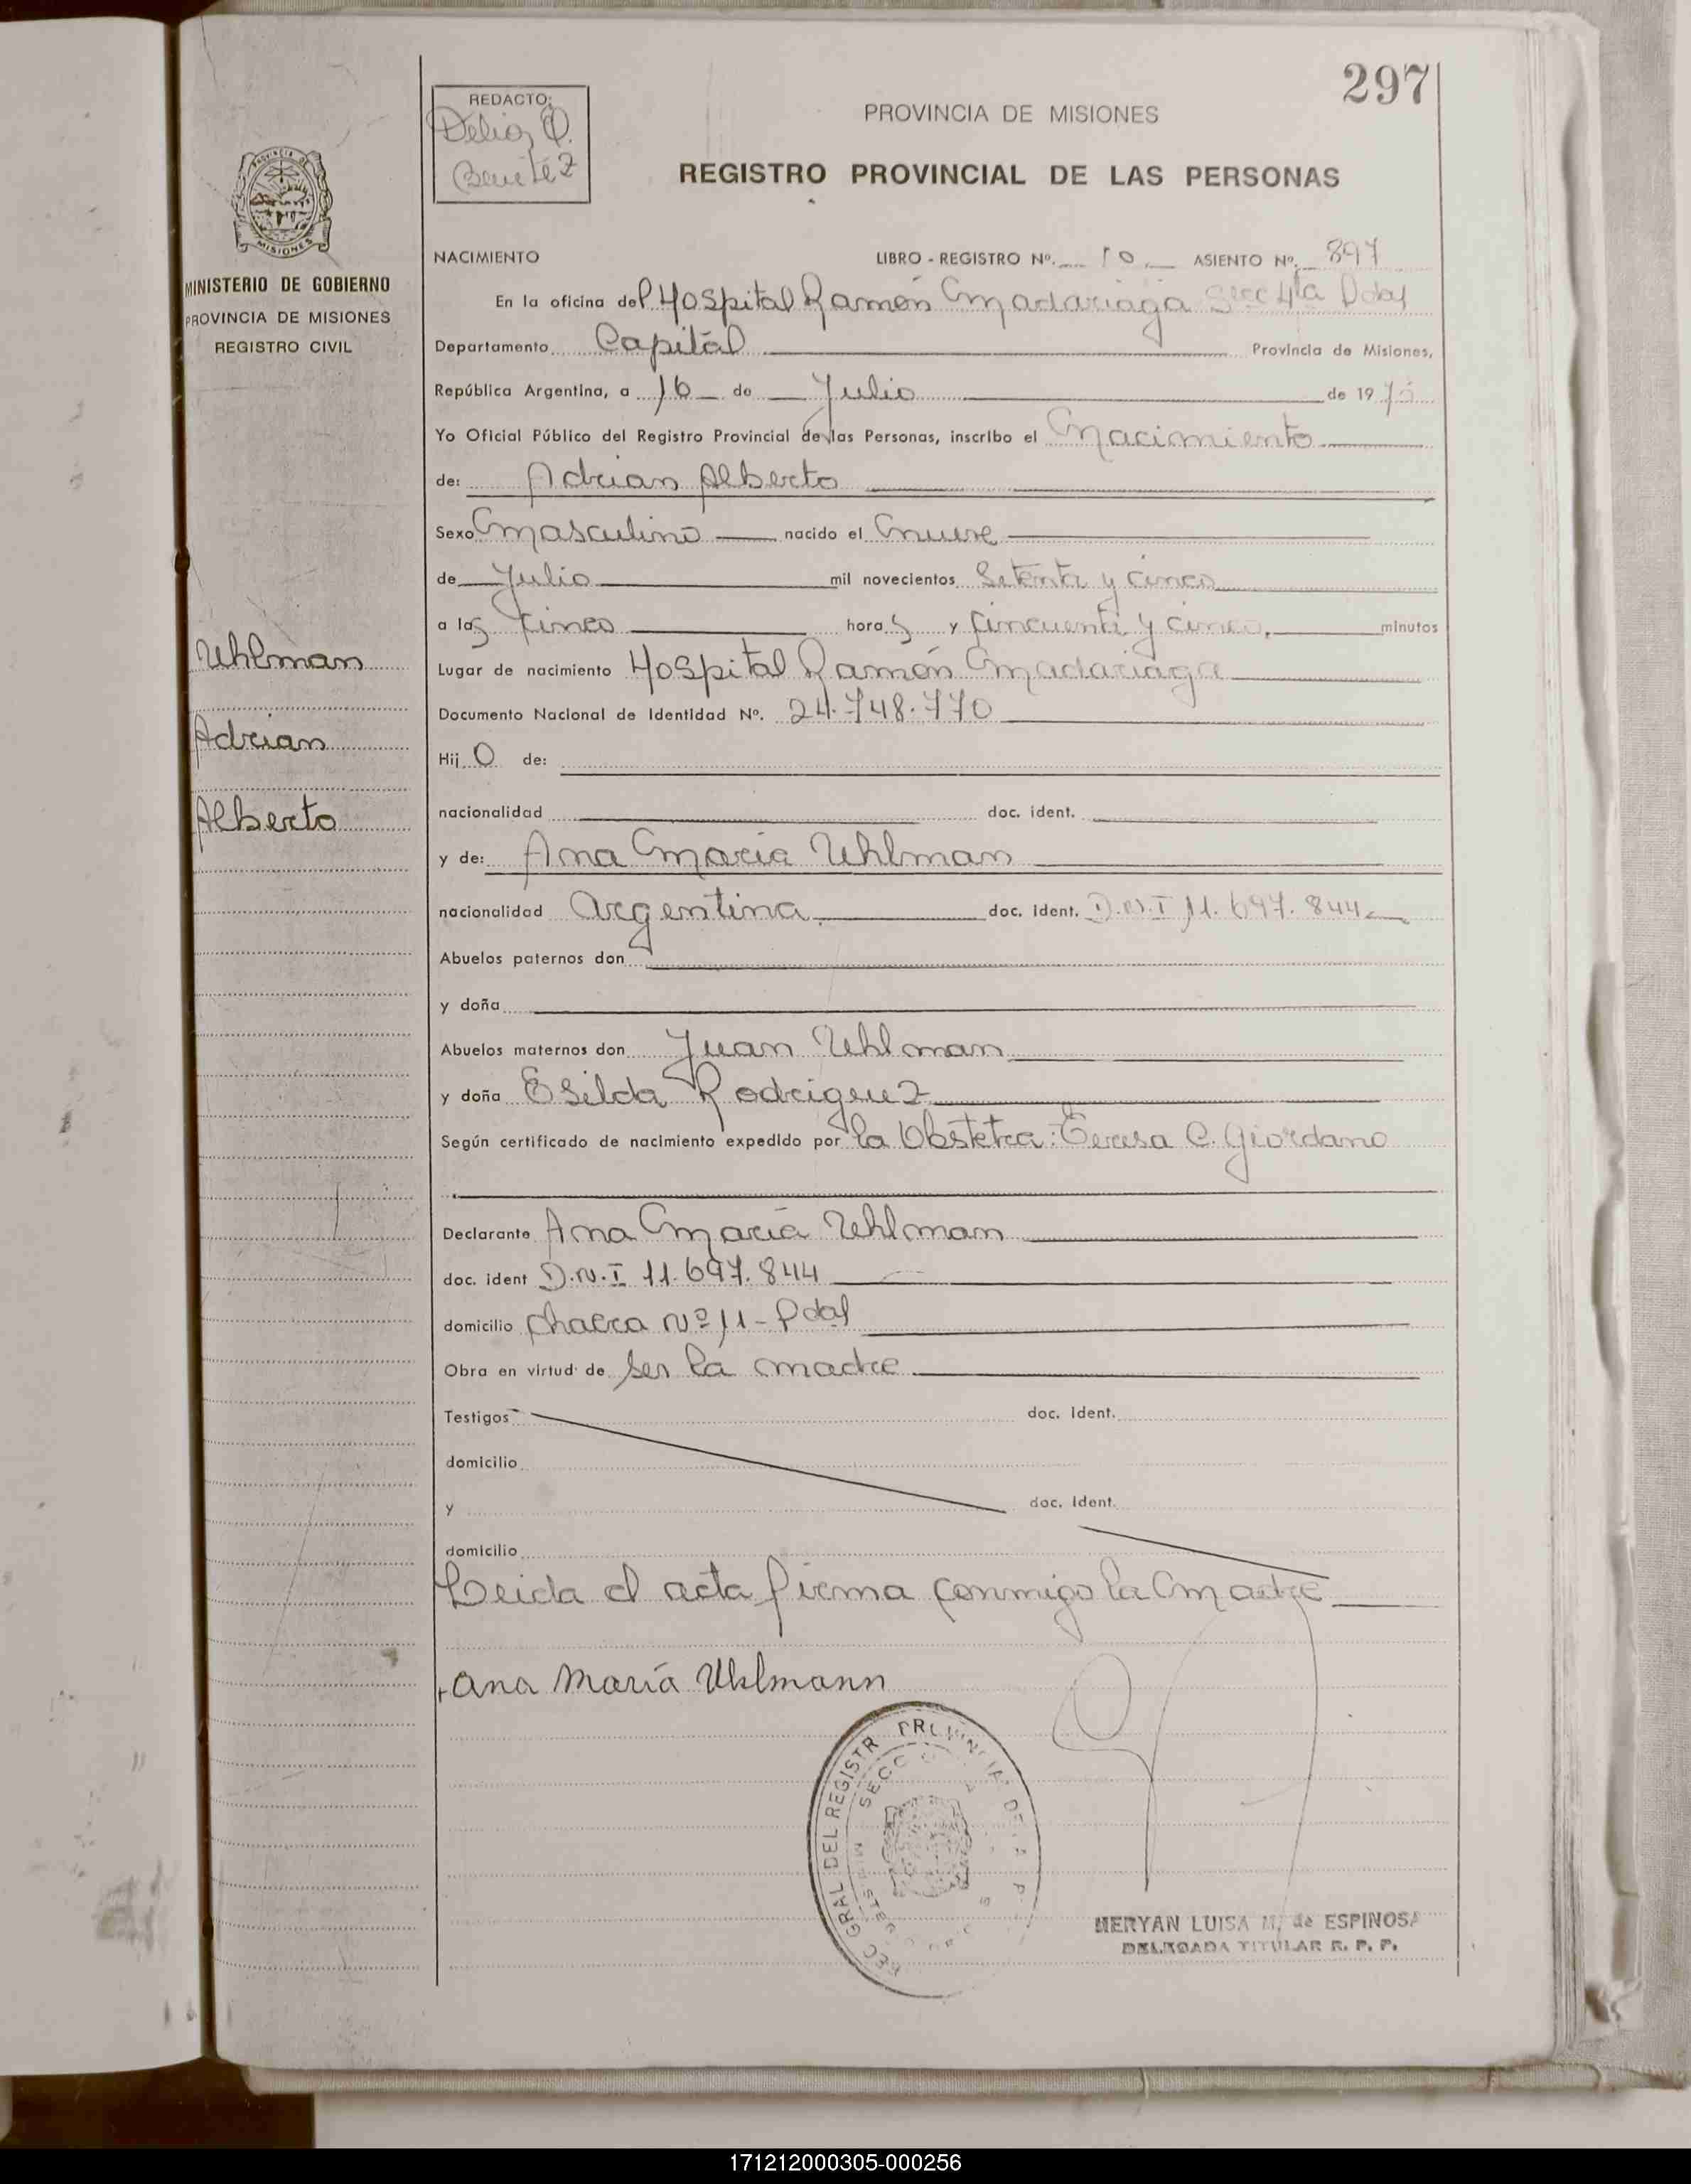 297
REDACTO:
Delia Q.
Benitez
PROVINCIA DE MISIONES
REGISTRO PROVINCIAL DE LAS PERSONAS
MISIONES
MINISTERIO DE GOBIERNO
PROVINCIA DE MISIONES
REGISTRO CIVIL
NACIMIENTO LIBRO - REGISTRO Nº. 10 ASIENTO Nº. 897
En la oficina del Hospital Ramón Madariaga Secc 4ta Pdas
Departamento Capital Provincia de Misiones,
República Argentina, a 16 de Julio de 1975
Yo Oficial Público del Registro Provincial de las Personas, inscribo el Nacimiento
de: Adrian Alberto
Sexo Masculino nacido el nueve
de Julio mil novecientos Setenta y cinco
a las cinco horas y cincuenta y cinco. minutos
Uhlman
Lugar de nacimiento Hospital Ramón Madariaga
Documento Nacional de Identidad Nº. 24.748.770
Adrian
Hijo de:
Alberto
nacionalidad doc. ident.
y de: Ana Maria Uhlman
nacionalidad Argentina doc. ident. D.N.I 11.697.844
Abuelos paternos don
y doña
Abuelos maternos don Juan Uhlman
y doña Esilda Rodriguez
Según certificado de nacimiento expedido por la Obstetra: Teresa C. Giordano
Declarante Ana María Uhlman
doc. ident D.N.I 11.697.844
domicilio Chacra Nº 11 - Pdas
Obra en virtud de ser la madre
Testigos doc. ident.
domicilio
y doc. ident.
domicilio
Leida el acta firma conmigo la Madre
Ana María Uhlmann
GRAL DEL REGISTR PROVINCIAL DE
SECC
MERYAN LUISA M. de ESPINOSA
DELEGADA TITULAR R. P. P.
171212000305-000256